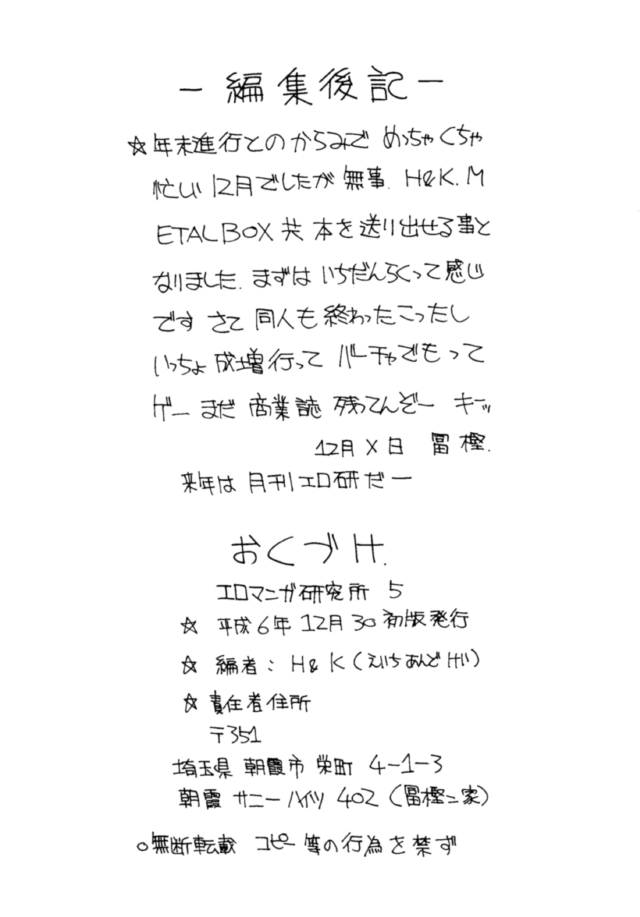 －編集後記－
☆年末進行とのからみで めっちゃくちゃ
忙しい12月でしたが 無事. H&K. M
ETAL BOX 共 本を送り出せる事と
なりました. まずは いちだんらくって感じ
です さて 同人も終わったこったし
いっちょ成増行って バーチャでもって
ゲー まだ 商業誌 残ってんぞー キーッ
12月 X 日 冨樫.
来年は 月刊エロ研だー
おくづけ.
エロマンガ研究所 5
☆ 平成6年 12月 30 初版発行
☆ 編者: H & K (えいちあんどけい)
☆ 責任者住所
〒351
埼玉県 朝霞市 栄町 4-1-3
朝霞 サニーハイツ 402 (冨樫ニ家)
○無断転載 コピー等の行為を禁ず